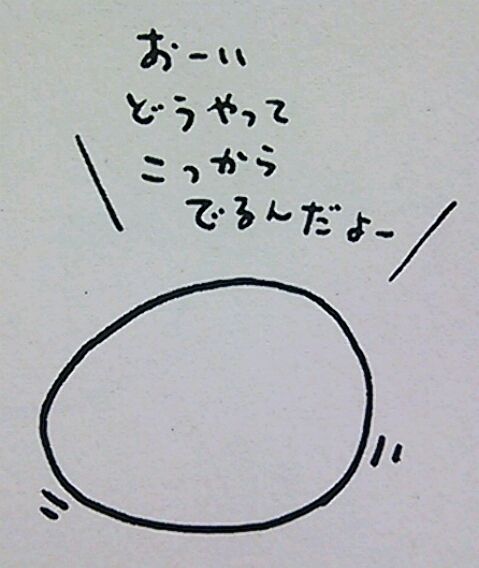 おーい
どうやって
こっから
でるんだよー